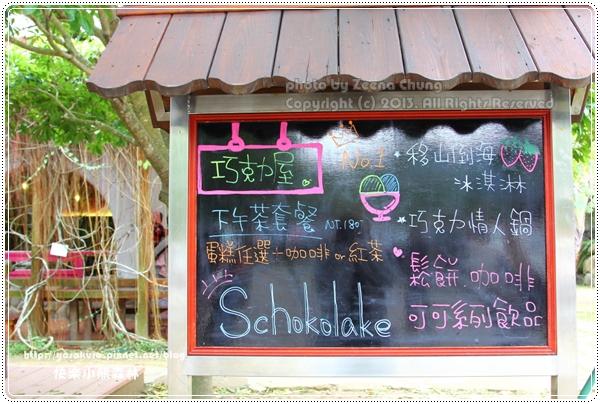 photo by Zeena Chung
Copyright (c) 2013. All Rights Reserved
巧克力屋
No.1
移山倒海
冰淇淋
下午茶套餐 NT.180
巧克力情人鍋
蛋糕任選+咖啡 or 紅茶
鬆餅.咖啡
Schokolake
可可系列飲品
http://yosakura.pixnet.net/blog
快樂小熊森林